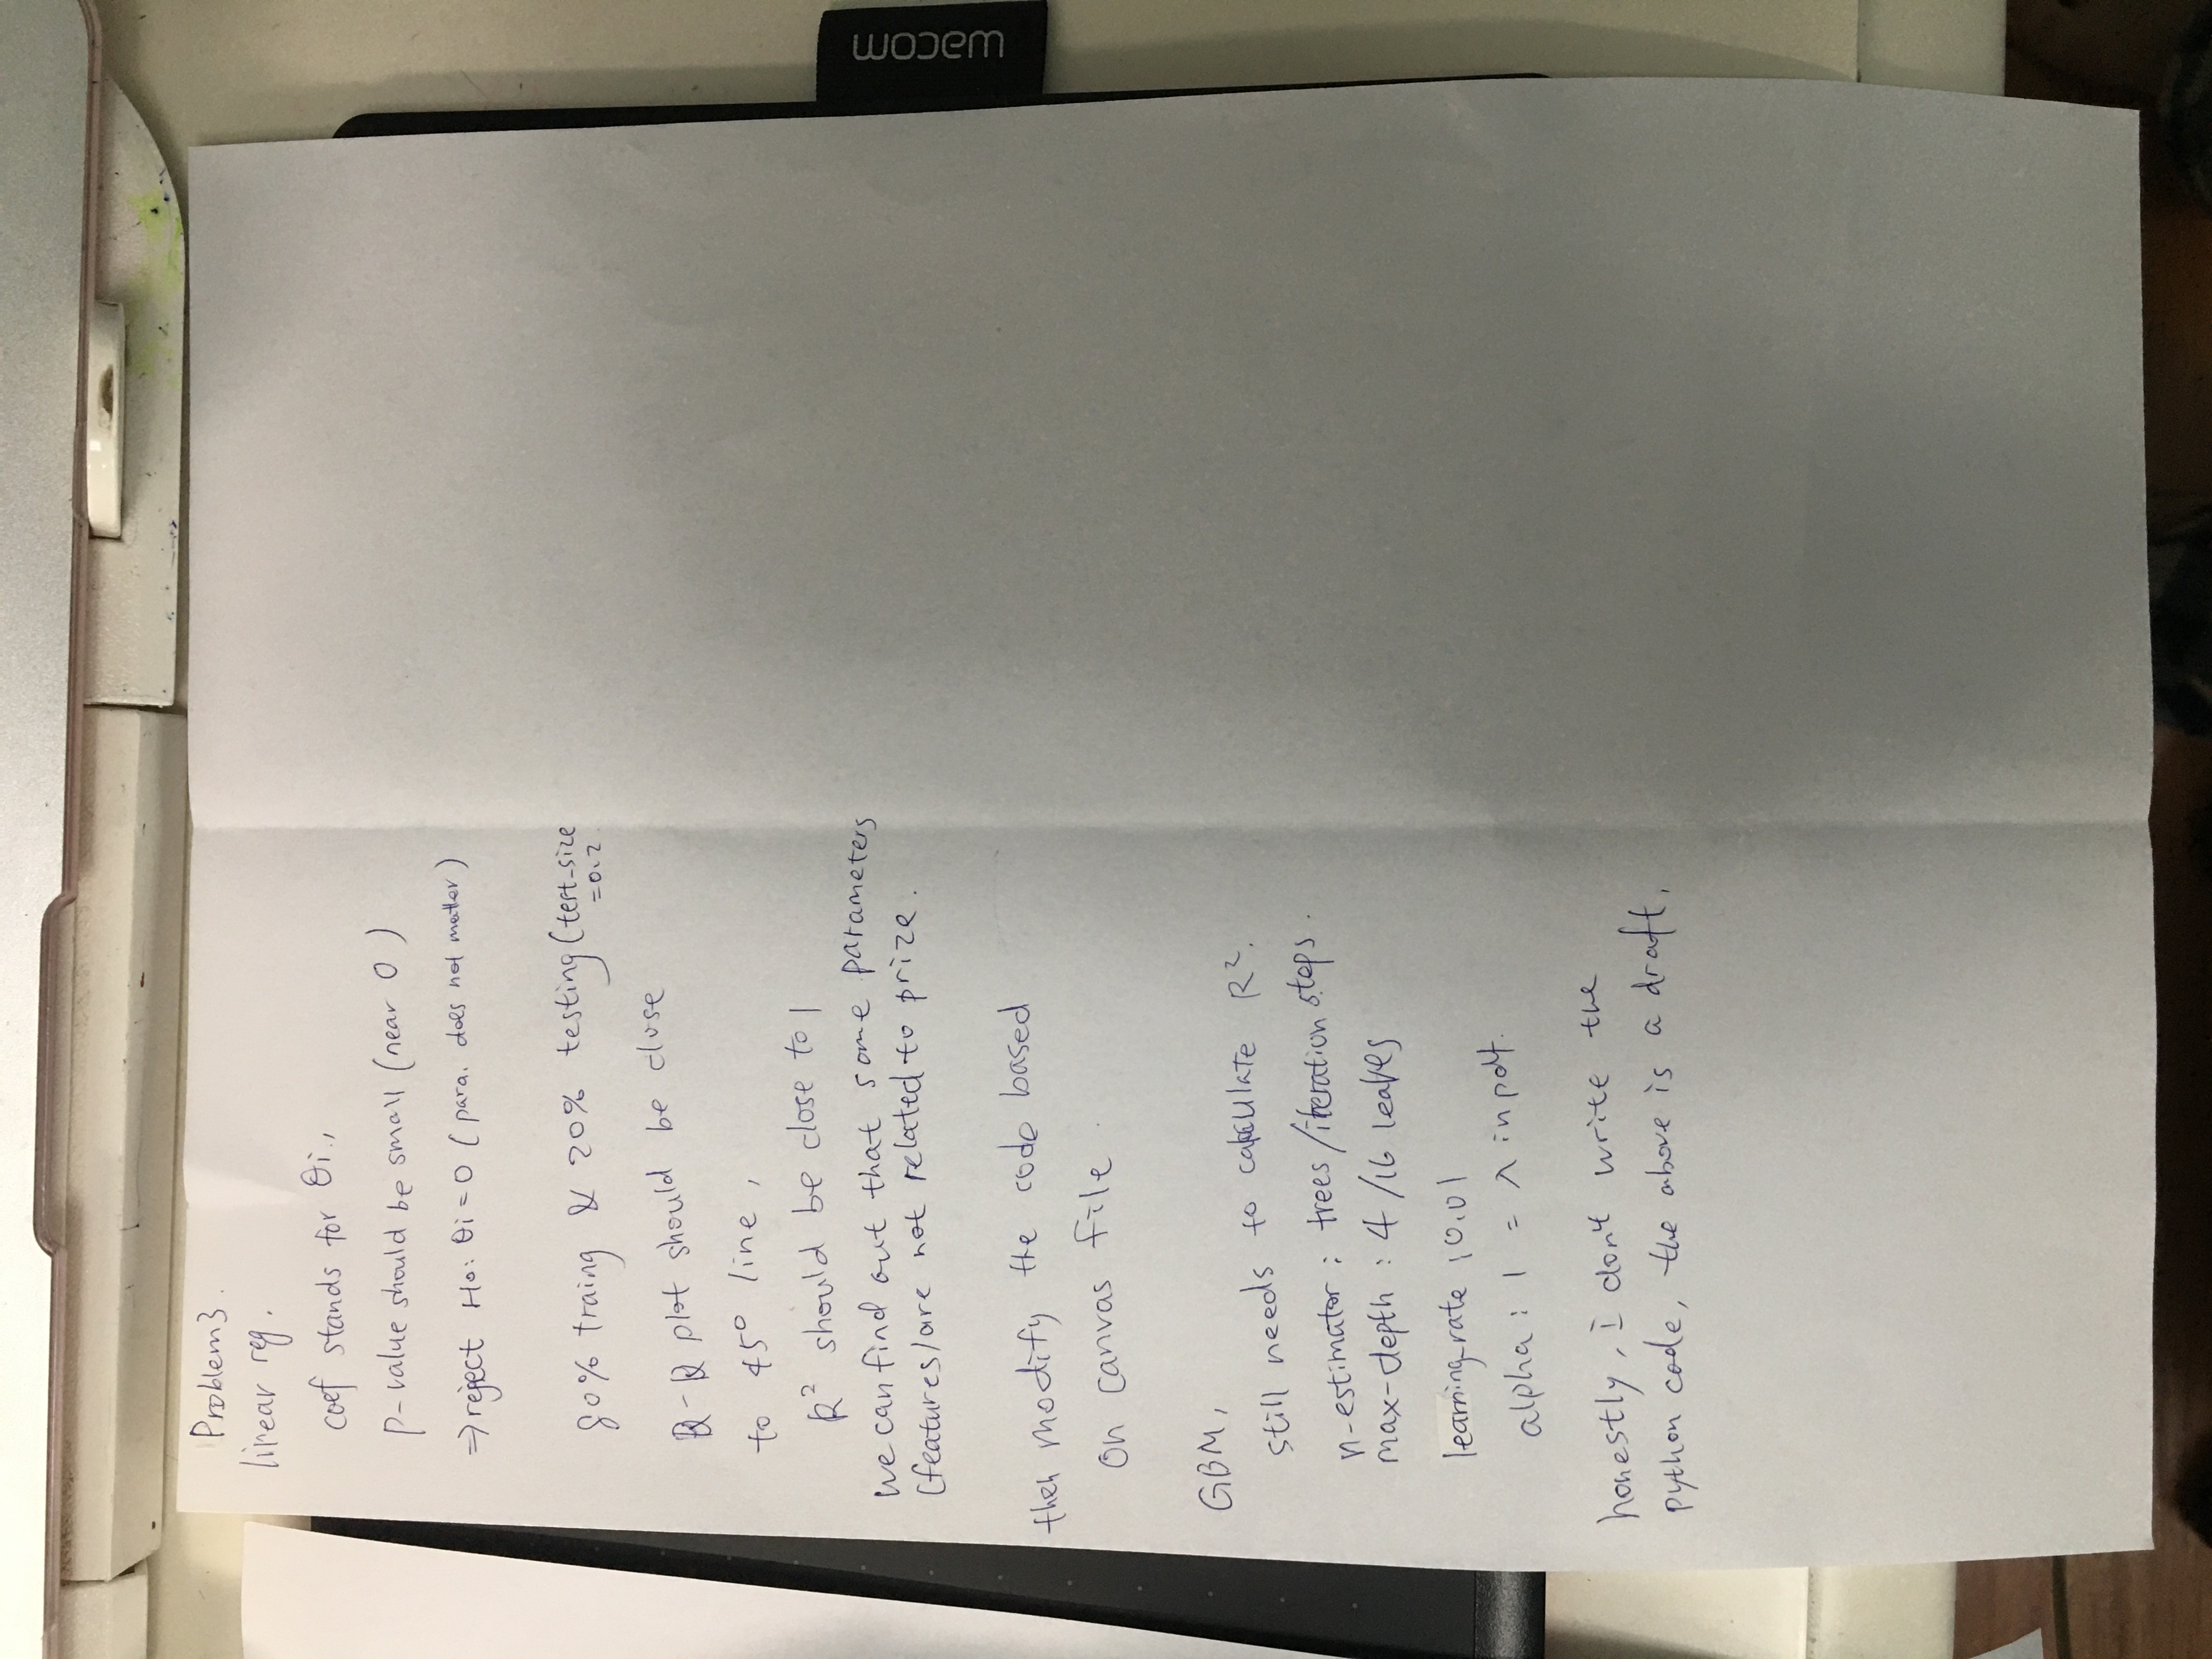 Problem 3.
linear reg.
coef stands for θi.,
p-value should be small (near 0)
⇒ reject H0: θi = 0 (para. does not matter)
80% traing & 20% testing (test_size
=0.2
Q-Q plot should be close
to 45° line,
R² should be close to 1
we can find out that some parameters
(features) are not related to prize.
then modify the code based
on canvas file.
GBM,
still needs to calculate R².
n-estimator: trees/iteration steps.
max-depth: 4/16 leaves
learning-rate: 0.01
alpha: 1 = λ in pdf.
honestly, i don't write the
python code, the above is a draft.
wacom